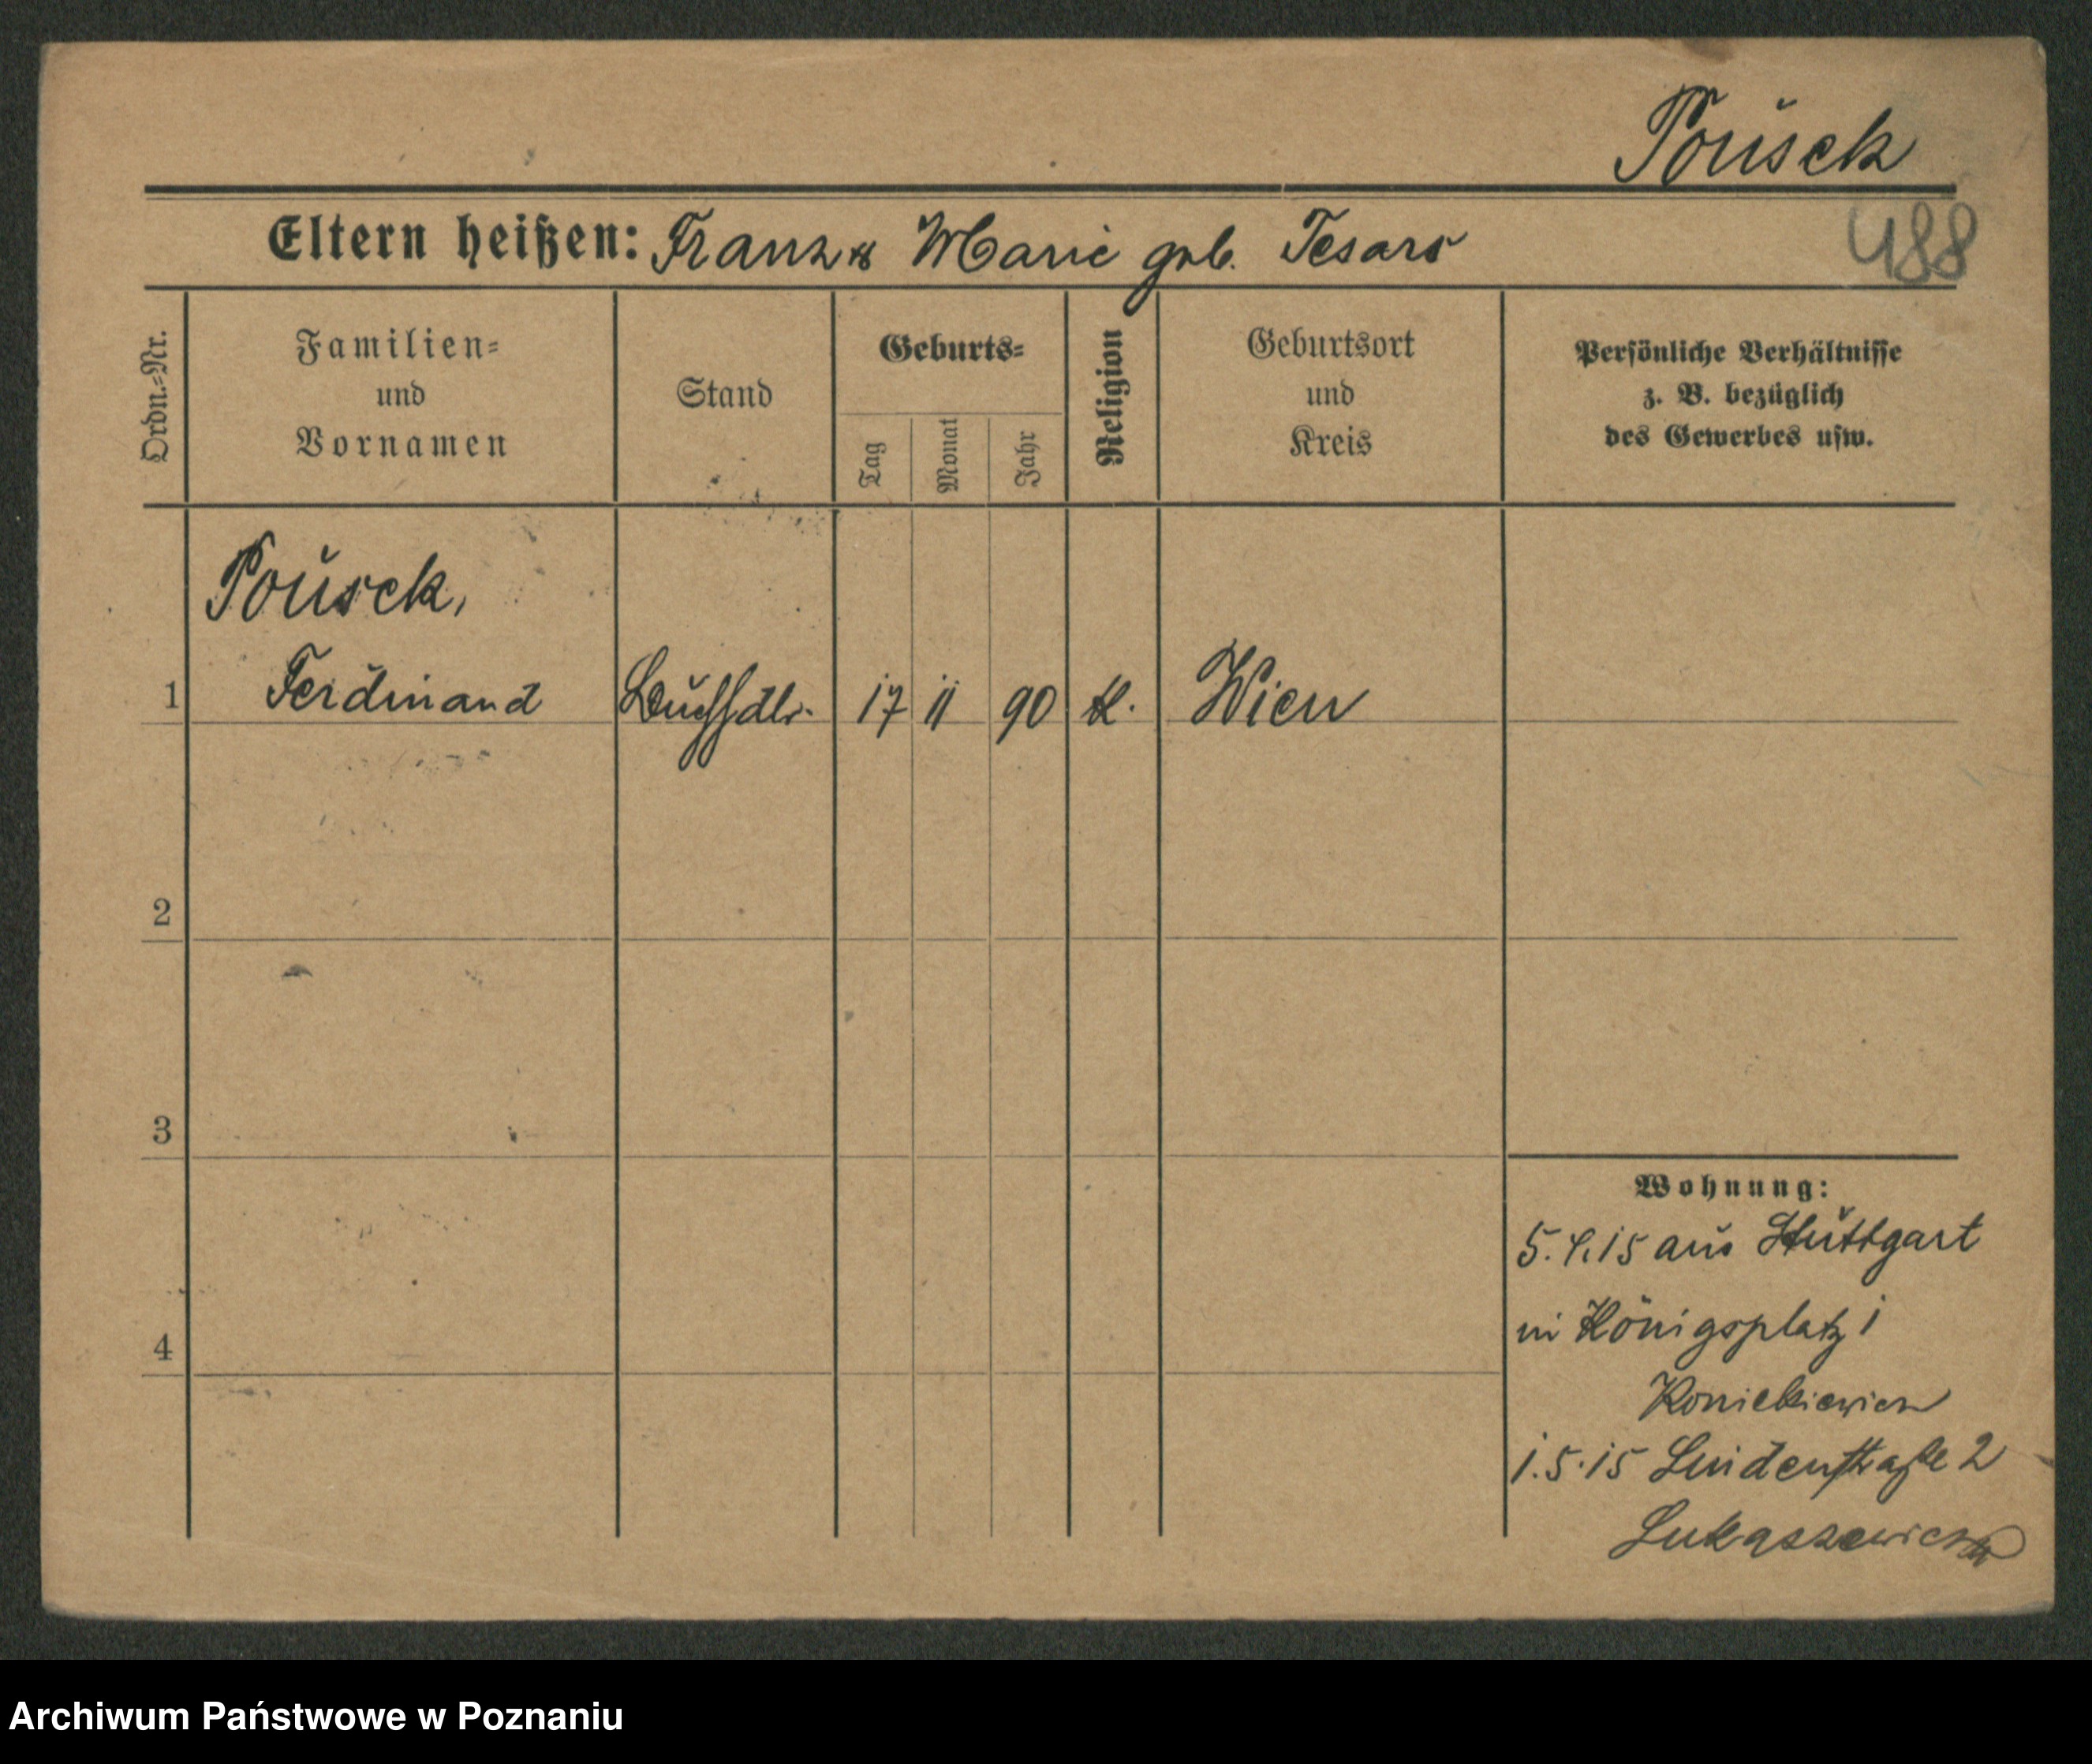 Pousek
Eltern heißen: Franz & Marie geb. Tesars
488
Ordn.-Nr.
Familien-
und
Vornamen
Stand
Geburts-
Tag
Monat
Jahr
Religion
Geburtsort
und
Kreis
Persönliche Verhältnisse
z. B. bezüglich
des Gewerbes usw.
Pousek,
1 Ferdinand Buchhdlr. 17 11 90 k. Wien
2
3
4
Wohnung:
5.4.15 aus Stuttgart
in Königsplatz 1
1.5.15 Lindenstraße 2
Archiwum Państwowe w Poznaniu